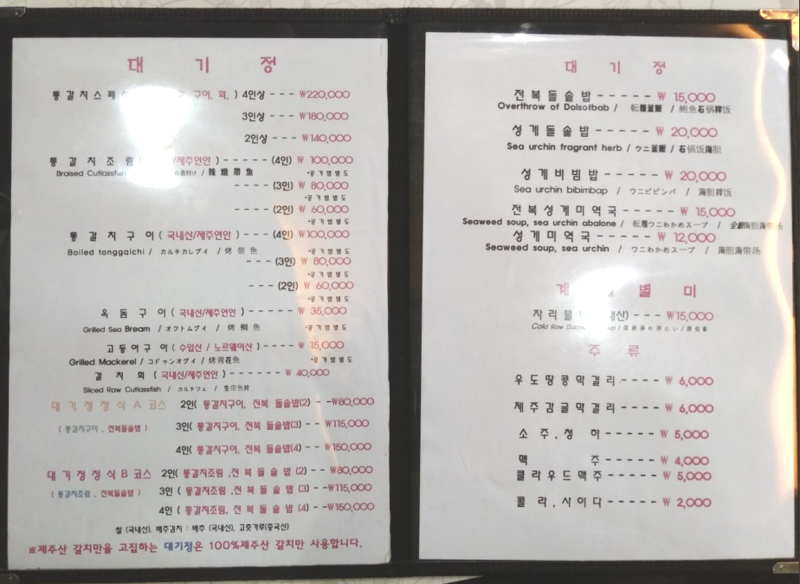 대 기 정
통갈치스페 구이, 회, ) 4인상 - - - ₩220,000
3인상 - - - ₩180,000
2인상 - - - ₩140,000
통갈치조림( /제주연안) - - - - - - (4인) ₩ 100,000
Braised Cutlassfish / 辣燉帶魚 *공기밥별도
- - - (3인) ₩ 80,000
*공기밥별도
- - - (2인) ₩ 60,000
*공기밥별도
통갈치구이(국내산/제주연안) - - - - (4인) ₩100,000
Boiled tonggalchi / カルチカレグイ / 烤 帶 魚 *공기밥별도
- - - (3인) ₩ 80,000
*공기밥별도
- - - (2인) ₩ 60,000
*공기밥별도
옥돔구이(국내산/제주연안) - - - - ₩ 35,000
Grilled Sea Bream / オクトムグイ / 烤 鯛 魚 *공기밥별도
고등어구이(수입산 / 노르웨이산) - - - ₩ 15,000
Grilled Mackerel / コドゥンオグイ / 烤青花魚 *공기밥별도
갈 치 회(국내산/제주연안) - - - - - - ₩ 40,000
Sliced Raw Cutlassfish / カルチフェ / 生帶魚片
대기정정식A코스 2인( 통갈치구이, 전복 돌솥밥(2) - - ₩80,000
( 통갈치구이 , 전복돌솥밥 ) 3인( 통갈치구이, 전복 돌솥밥(3) - - ₩115,000
4인( 통갈치구이, 전복 돌솥밥(4) - - ₩150,000
대기정정식B코스 2인( 통갈치조림 ,전복 돌솥밥 (2) - - ₩80,000
( 통갈치조림 , 전복돌솥밥 ) 3인 ( 통갈치조림, 전복 돌솥밥 (3) - - ₩115,000
4인 ( 통갈치조림, 전복 돌솥밥 (4) - - ₩150,000
쌀 (국내산), 배추김치 : 배추 (국내산), 고춧가루(중국산)
※제주산 갈치만을 고집하는 대기정은 100%제주산 갈치만 사용합니다.
대 기 정
전복돌솥밥 - - - - - ₩ 15,000
Overthrow of Dolsotbab / 転覆釜飯 / 鲍鱼石锅拌饭
성게돌솥밥 - - - - - ₩ 20,000
Sea urchin fragrant herb / ウニ釜飯 / 石锅饭海胆
성게비빔밥 - - - - - ₩ 20,000
Sea urchin bibimbap / ウニビビンバ / 海胆拌饭
전복성게미역국 - - - - ₩ 15,000
Seaweed soup, sea urchin abalone / 転覆ウニわかめスープ / 全鳆海胆海带汤
성게미역국 - - - - - - ₩ 12,000
Seaweed soup, sea urchin / ウニわかめスープ / 海胆海带汤
계 별 미
자리물 내산) - - - ₩15,000
Cold Raw
주 류
우도땅콩막걸리 - - - - ₩ 6,000
제주감귤막걸리 - - - - ₩ 6,000
소 주 , 청 하 - - - - - ₩ 5,000
맥 주 - - - - - ₩ 4,000
클라우드맥주 - - - - - ₩ 5,000
콜 라 , 사 이 다 - - - - - ₩ 2,000